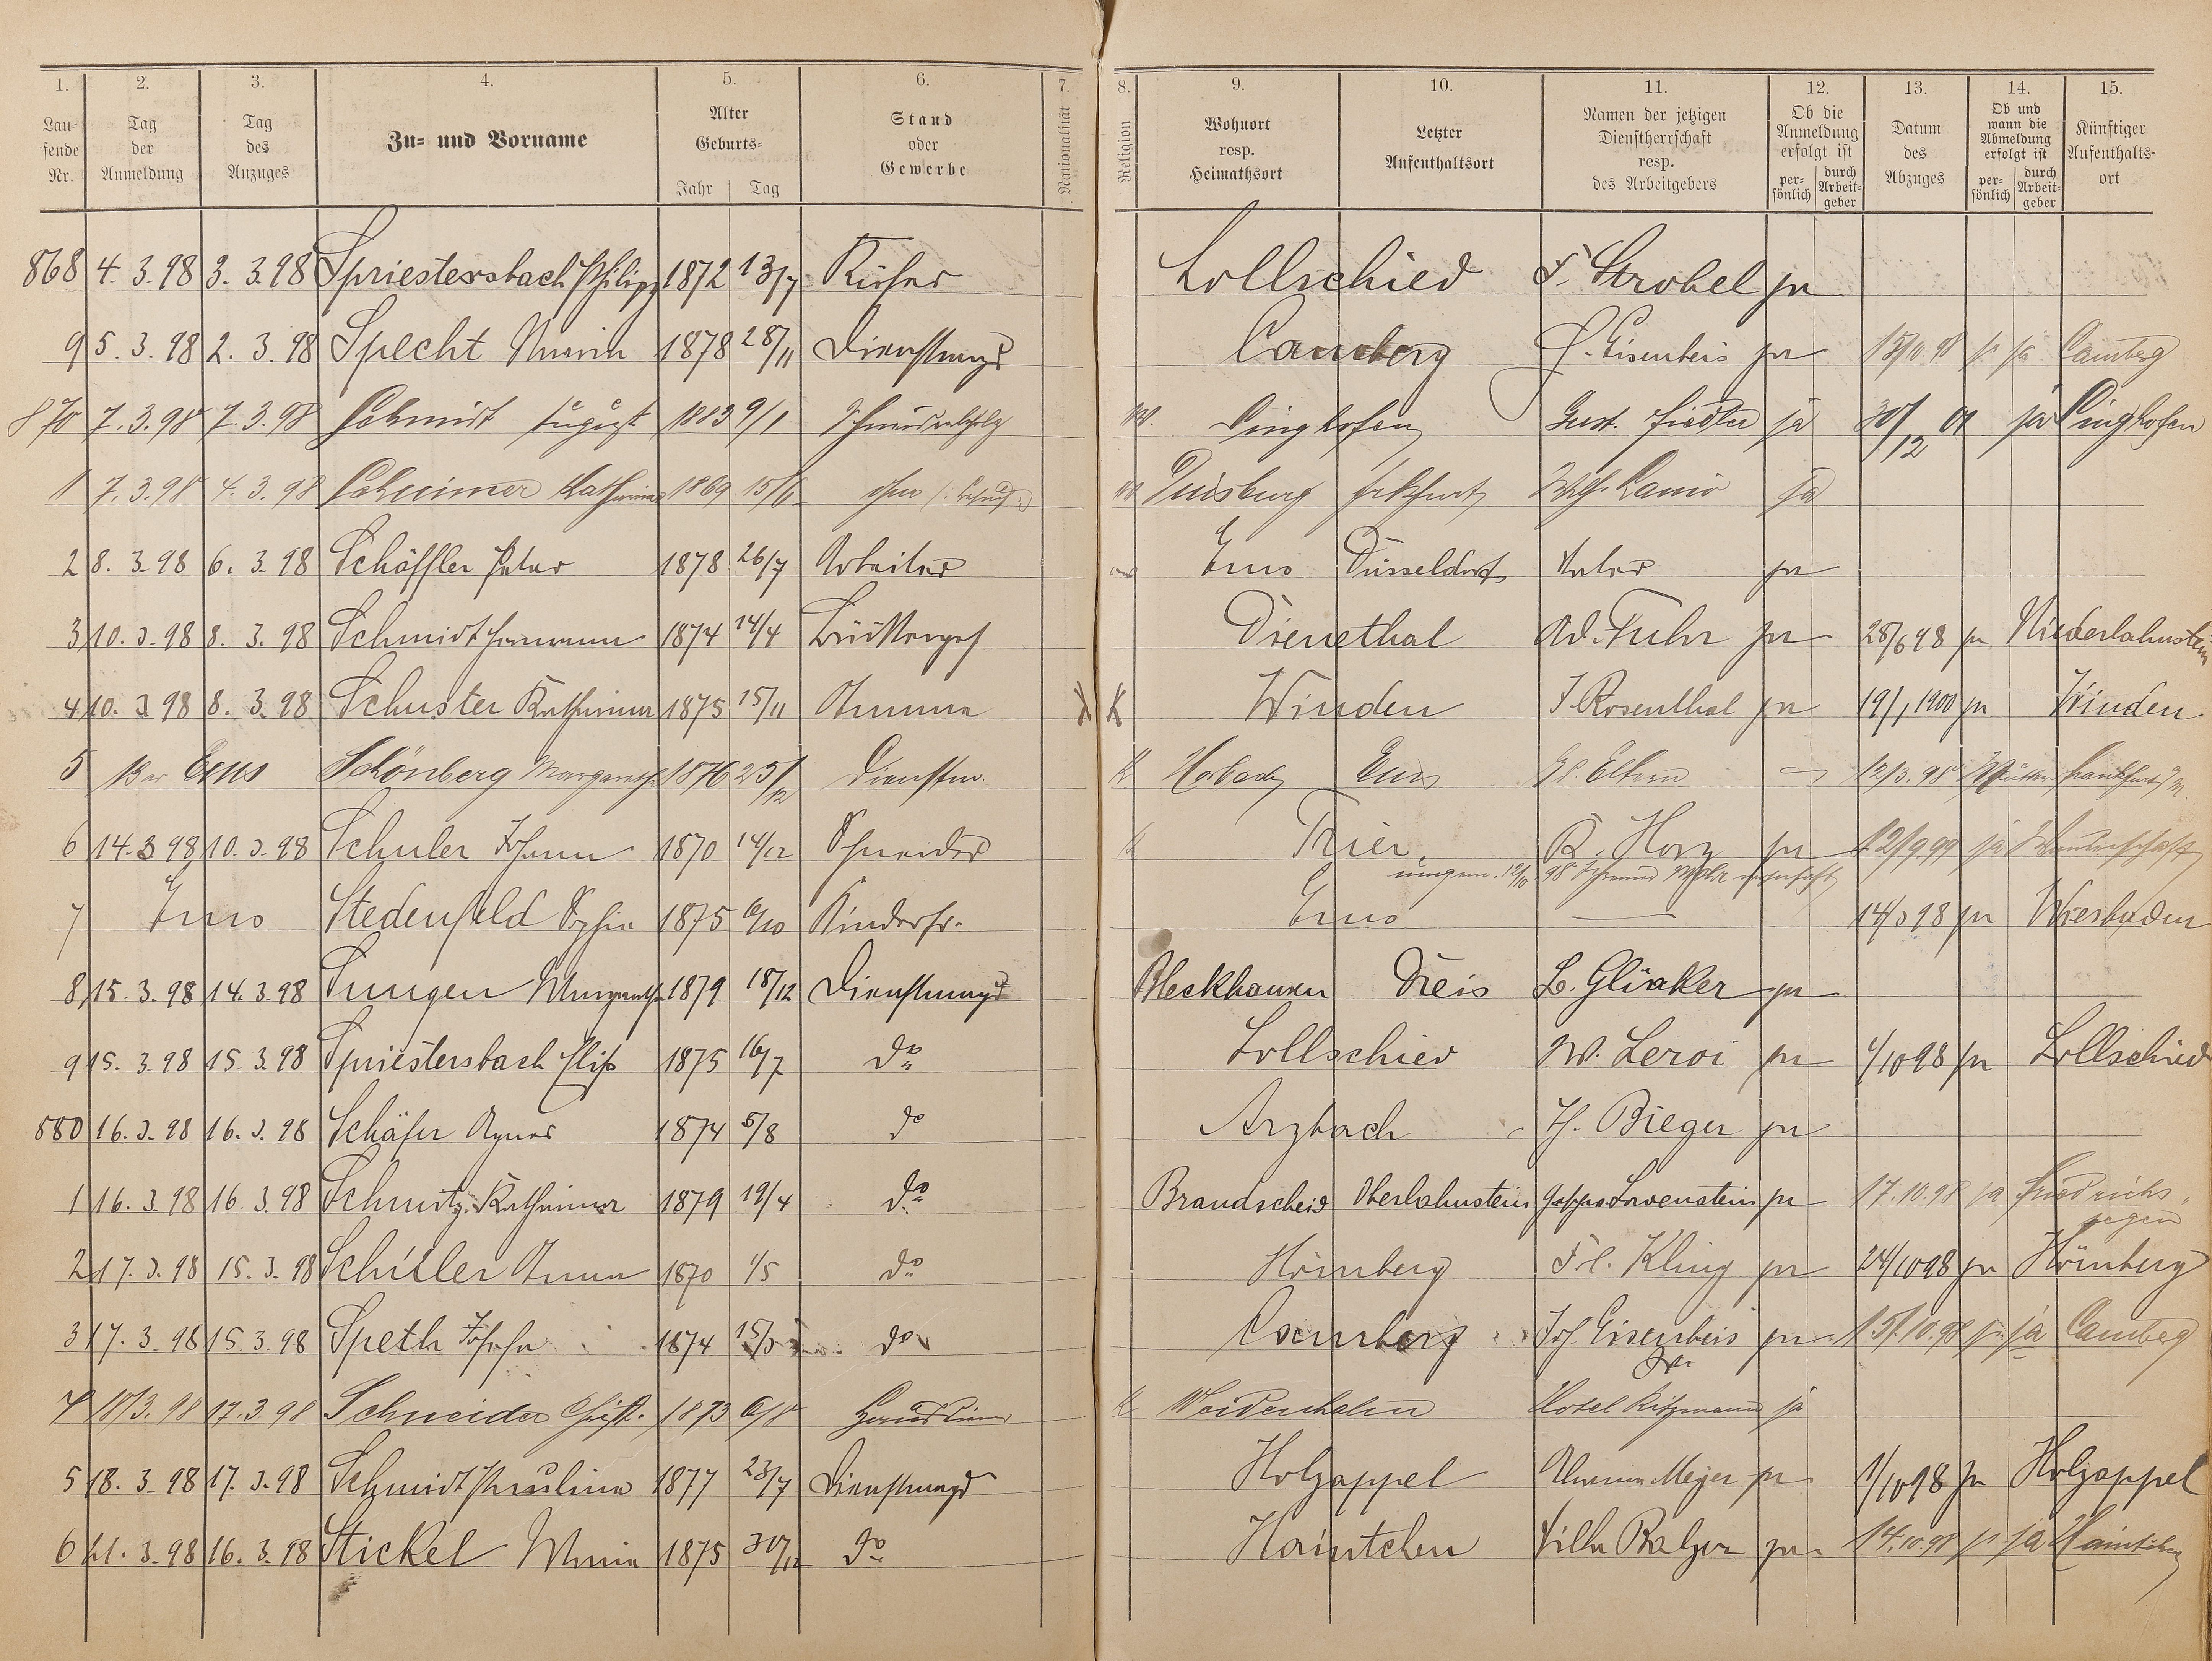 1. 2. 3. 4. 5. 6. 7. 8. 9. 10. 11. 12. 13. 14. 15.
Lau-
fende
Nr.
Tag
der
Anmeldung
Tag
des
Anzuges
Zu- und Vorname
Alter
Geburts-
Jahr Tag
Stand
oder
Gewerbe
Nationalität
Religion
Wohnort
resp.
Heimathsort
Letzter
Aufenthaltsort
Namen der jetzigen
Dienstherrschaft
resp.
des Arbeitgebers
Ob die
Anmeldung
erfolgt ist
per-
sönlich
durch
Arbeit-
geber
Datum
des
Abzuges
Ob und
wann die
Abmeldung
erfolgt ist
per-
sönlich
durch
Arbeit-
geber
Künftiger
Aufenthalts-
ort
868 4. 3. 98 3. 3. 98 Spriestersbach Philipp 1872 13/7 Küfer Lollschied F. Strobel ja
9 5. 3. 98 2. 3. 98 Specht Maria 1878 28/11 Dienstmagd Camberg J. Eisenbeis ja 15/10.98 ja Camberg
870 7. 3. 98 7. 3. 98 Schmidt August 1883 9/1 Singhofen Gust. Fiedler ja 30/12 01 ja Singhofen
1 7. 3. 98 4. 3. 98 Katharina 1869 15/6 ohne Duisburg Frkfurt ja
2 8. 3. 98 6. 3. 98 Schäffler Peter 1878 26/7 Arbeiter Ems Düsseldorf Vater ja
3 10. 3. 98 8. 3. 98 Schmidt Hermann 1874 14/4 Dienethal Ad. Fuhr ja 28/6 98 ja Niederlahnstein
4 10. 3. 98 8. 3. 98 Schuster Katharina 1875 15/11 Amme K Winden J. Rosenthal ja 19/1 1900 ja Winden
5 Ems Schönberg Margarethe 1876 25/12 Dienstm. K. Horbach Ems Eltern 12/3. 98 Mutter Frankfurt a/M
6 14. 3. 98 10. 3. 98 Schuler Johann 1870 14/12 Schneider K Trier R. Horz ja 12/9.99 ja Wanderschaft
7 Ems Stedenfeld Sophie 1875 6/10 Kinderfr. Ems — 14/3 98 ja Wiesbaden
8 15. 3. 98 14. 3. 98 Sungen Margareth 1879 18/12 Dienstmagd Bleckhausen Dreis L. Glücker ja
9 15. 3. 98 15. 3. 98 Spriestersbach Elise 1875 16/7 do Lollschied W. Leroi ja 1/10 98 ja Lollschied
880 16. 3. 98 16. 3. 98 Schäfer Agnes 1874 5/8 do Arzbach H. Bieger ja
1 16. 3. 98 16. 3. 98 Schmitz Katharina 1879 19/4 do Brandscheid Oberlahnstein Löwenstein ja 17.10.98 ja Friedrichs-
segen
2 17. 3. 98 15. 3. 98 Schiller Anna 1870 1/5 do Hömberg Frl. Kling ja 24/10 98 ja Hömberg
3 17. 3. 98 15. 3. 98 Speth Josefa 1874 15/3 do Camberg Jos. Eisenbeis ja 15/10.98 ja Camberg
4 18/3. 98 17. 3. 98 Schneider Christ. 1873 6/8 Hausdiener K Weidenhahn Hotel Ritzmann ja
5 18. 3. 98 17. 3. 98 Schmidt Pauline 1877 23/7 Dienstmagd Holzappel Meyer ja 1/10 98 ja Holzappel
6 21. 3. 98 16. 3. 98 Stickel Maria 1875 30/12 do Haintchen Wilh. Balzer ja 14.10.98 ja Haintchen